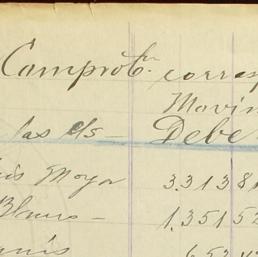 Comprobn. corresp
Movim
las c/s — Debe
uis Moya 3.313 81
Blanco — 1.351 52
anis 653